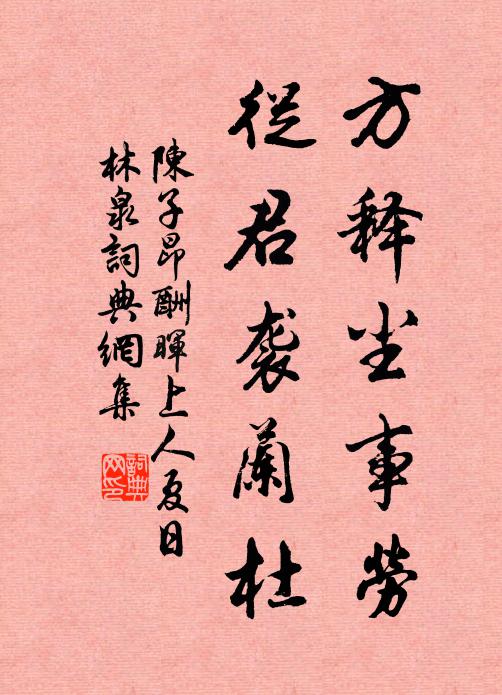 方释尘事勞
從君袭蘭杜
陳子昂酬暉上人夏日
林泉詞典網集
詞典网印